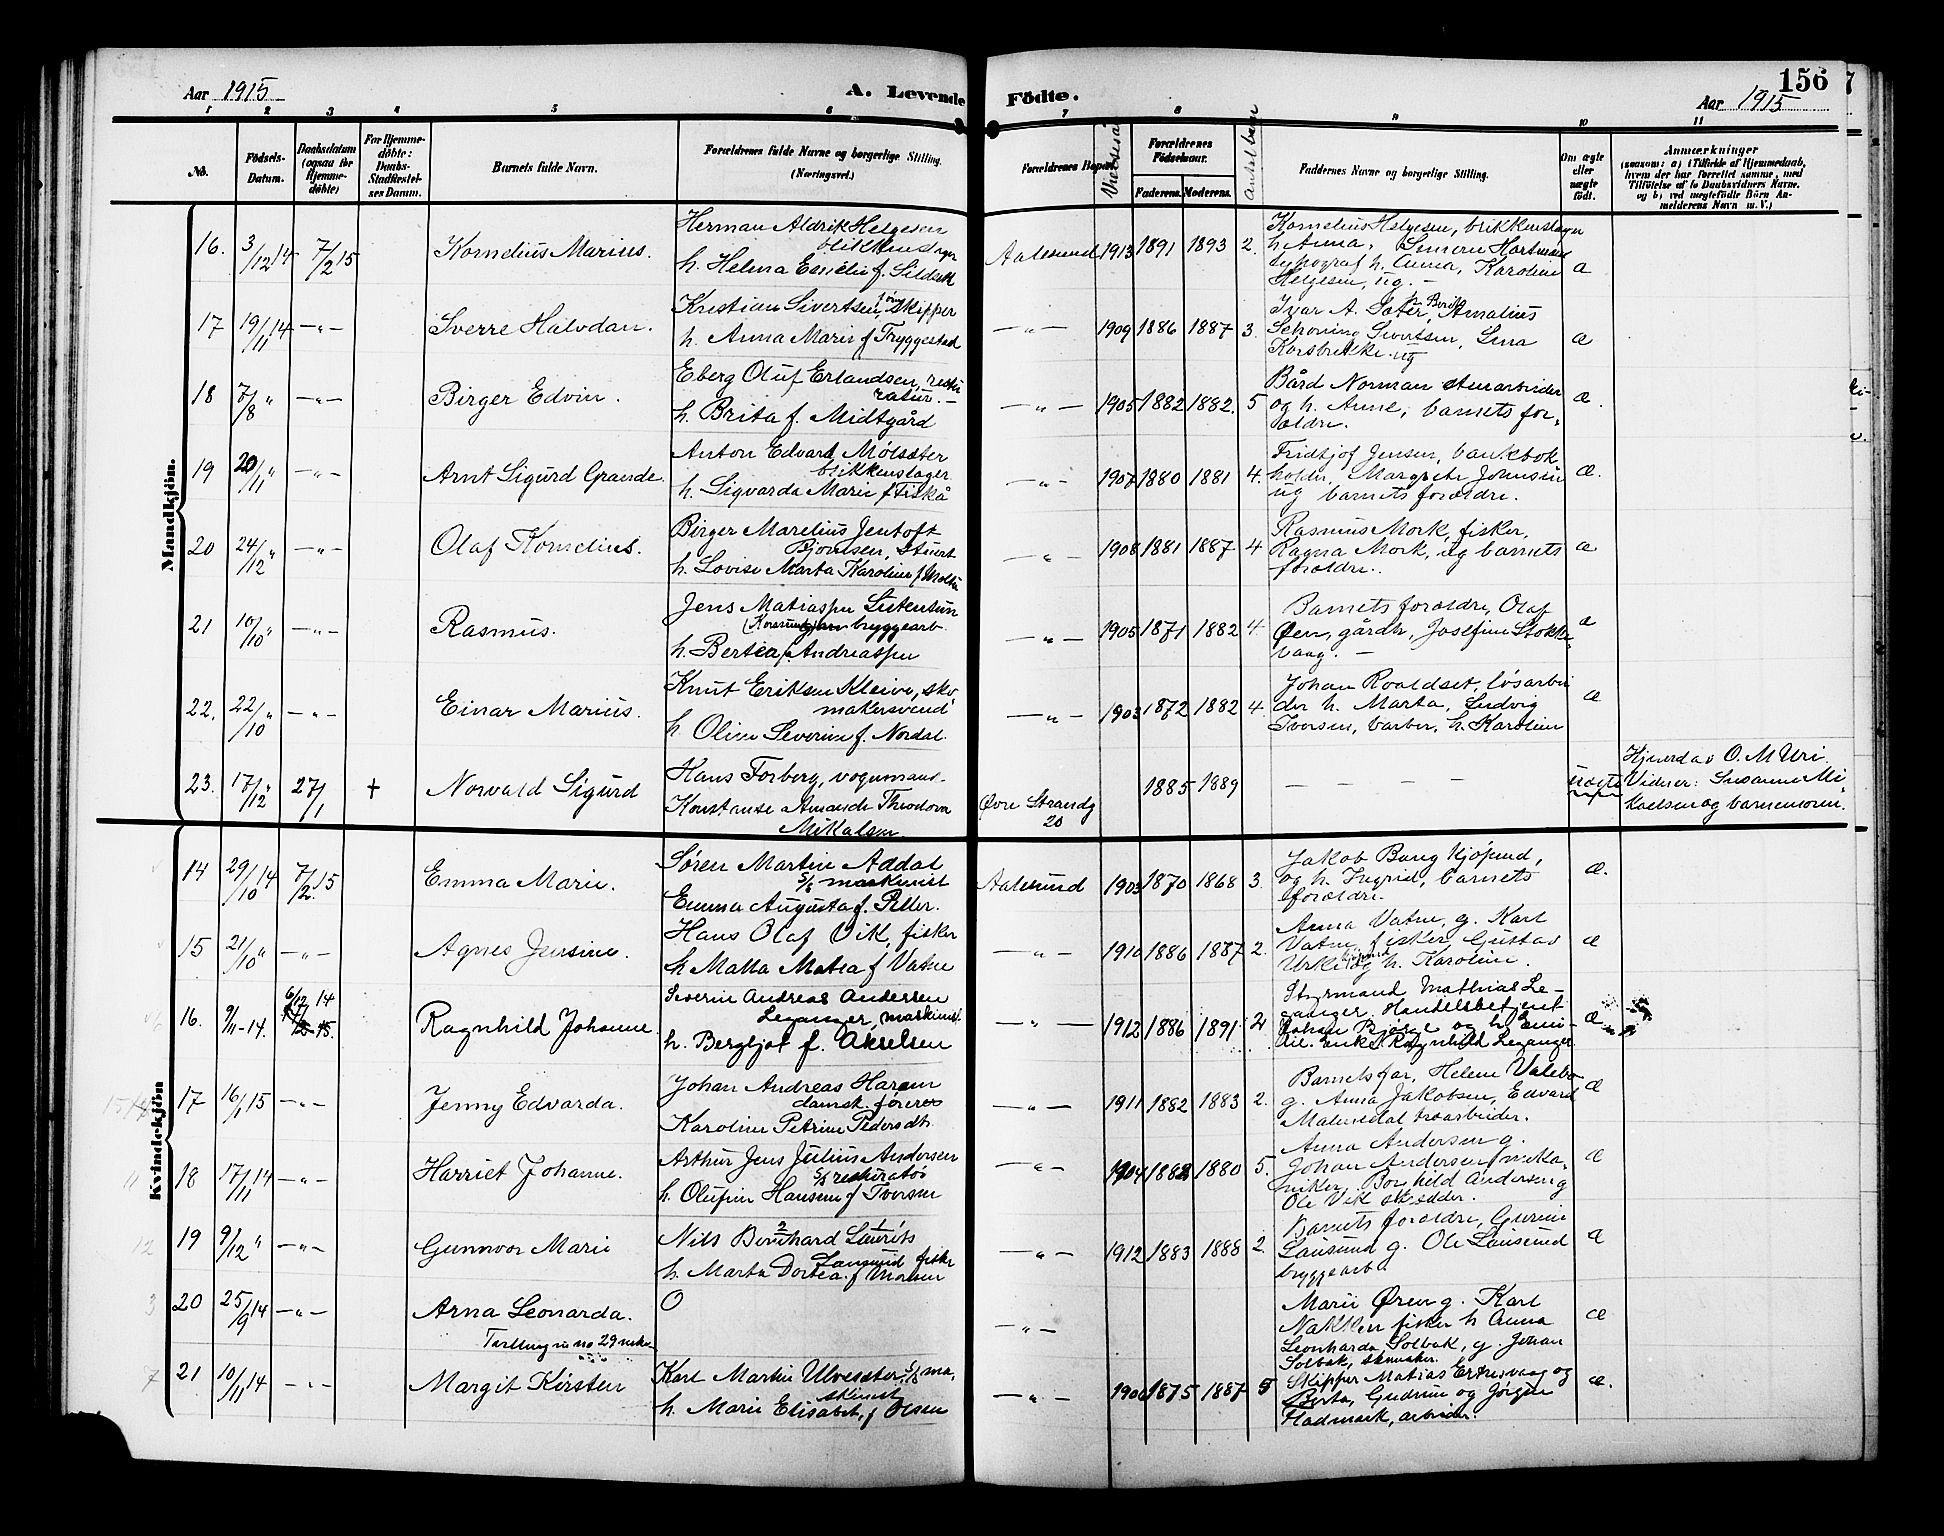 156
Aar 1915
A. Levende Födte.
Aar 1915
1 2 3 4 5 6 7 8 9 10 11
No.
Födsels-Datum.
Daabsdatum (ogsaa for Hjemme-döbte)
For Hjemme-döbte: Daabs-Stadfæstel-ses Datum.
Barnets fulde Navn.
Forældrenes fulde Navne og borgerlige Stilling.
(Næringsvei.)
Forældrenes Bopæl.
Vielsesaar
Forældrenes Födselsaar.
Faderens. Moderens.
Antal barn
Faddernes Navne og borgerlige Stilling.
Om ægte eller uægte födt.
Anmærkninger
(saasom: a) i Tilfælde af Hjemmedaab, hvem der har forrettet samme, med Tilföielse af to Daabsvidners Navne, og b) ved uægtefödte Börn An-melderens Navn m. V.)
Mandkjön.
16. 3/12 14 7/2 15 Kornelius Marius.
Herman Aldrik Helgesen
blikkenslager
h. Helena Emelie f. Sildnes
Aalesund 1913 1891 1893 2.
Kornelius Helgesen, blikkenslager
h. Anna, Simon Hartman
typograf h. Anna, Karoline
Helgesen, ug. -
æ
17 19/11 14 -"- Sverre Halvdan.
Kristian Sivertsen, skipper
h. Anna Marie f Tryggestad
-"- 1909 1886 1887 3.
Ivar A. Sæter, h. Berit, Amalius
Schøning Sivertsen, Lina
Korsbrekke ug
æ
18 7/8 " -"- Birger Edvin.
Eberg Oluf Erlandsen, restu
ratur. -
h. Brita f. Midtgård
-"- 1905 1882 1882. 5
Bård Norman stenarbeider
og h. Anne, barnets for,
ældre.
æ.
19 20/11 " -"- Arnt Sigurd Grande.
Anton Edvard Molsæter
blikkenslager.
h. Sigvarda Marie f Fiskå
-"- 1907 1880 1881 4.
Fridtjof Jensen, bankebok
holder, Margrete Johnsen
ug barnets forældre.
æ.
20 24/12 " -"- Olaf Kornelius.
Birger Marelius Jentoft
Bjørnsen, Stuert
h. Lovise Marta Karoline f Molt
-"- 1908 1881 1887 4
Rasmus Mork, fisker,
Ragna Mork, ug barnets
forældre.
æ
21 10/10 " -"- Rasmus.
Jens Matiassen
bryggearb.
h. Bertea f. Andreassen
-"- 1905 1871 1882 4.
Barnets forældre, Olaf
Øen, gårdb., Josefine Stokke
vaag. -
æ
22. 22/10 " -"- Einar Marius.
Knut Eriksen Kleive, sko
makersvend
h Oline Severine f. Nordal.
-"- 1903 1872 1882 4.
Johan Roaldset, løsarbei
der h. Marta, Ludvig
Iversen, barber, h. Karoline
æ
23. 17/12 " 27/1 + Norvald Sigurd
Hans Forberg, vognmand.
Konstanse Amanda Theodora
Mikalsen
Øvre Strandg 20
1885 1889
- - -
uægte
Hjemmed av O. M Uri.
Vidner: Susanne Mi-
kaelsen og barnemoren.
Kvindekjön
14 29/10 14 7/2 15 Emma Marie.
Søren Martin Addal
S/S maskinist
Emma Augusta f. Peller.
Aalesund 1903 1870 1868 3.
Jakob Bang kjøpmd,
og h. Ingrid, barnets
forældre.
æ.
15 21/10 " -"- Agnes Jensine.
Hans Olaf Vik, fisker
h Malla Matea f Vatne
-"- 1910 1886 1887 2.
Anna Vatne, g. Karl
Vatne, fisker, Gustav
Urke og h. Karoline.
æ
16. 9/11-14. 6/12 14 Ragnhild Johanne.
Severin Andreas Andersen
Leganger, maskinist
h. Bergljot f. Akselsen
-"- 1912 1886 1891 2
Styrmand Mathias Le-
ganger, Handelsbetjent
Johan Bjørge og h. Emi-
lie. Enke Ragnhild Leganger
æ
17 16/1 15 -"- Jenny Edvarda.
Johan Andreas Haram
dampsk. fører
Karoline Petrine Pedersdt.
-"- 1911 1882 1883 2.
Barnets far, Helene Valebo
g. Anna Jakobsen, Edvard
Malmedal træarbeider.
æ
18 17/11 14 -"- Harriet Johanne.
Arthur Jens Julius Andersen
S/S resturatør
h. Olufine Hansen f Iversen
-"- 1904 1882 1880 5.
Anna Andersen g.
Johan Andersen, meka-
niker, Borghild Andersen g
Ole Vik
æ
19 9/12 " -"- Gunnvor Marie
Nils Bernhard Laurits
Lausund fisker
h. Marta Dortea f Monsen
-"- 1912 1883 1888 2.
Barnets forældre, Gurine
Lausund g. Ole Lausund
bryggearb.
æ
20 25/9 14 -"- Arna Leonarda.
O
Tvilling m no 29 neste
-"-
Marie Øren g. Karl
Nakken fisker h Anna
Leonharda Solbak, g. Johan
Solbak, skomaker.
æ
21 10/11 14 -"- Margit Kirsten
Karl Martin Ulvesæter, S/S ma,
skinist
h. Marie Elisabet, f Olsen
-"- 1906 1875 1887 5
Skipper Matias Erknevaag og
Berta, Gudrun og Jørgen
Hadmark, arbeider.
æ.